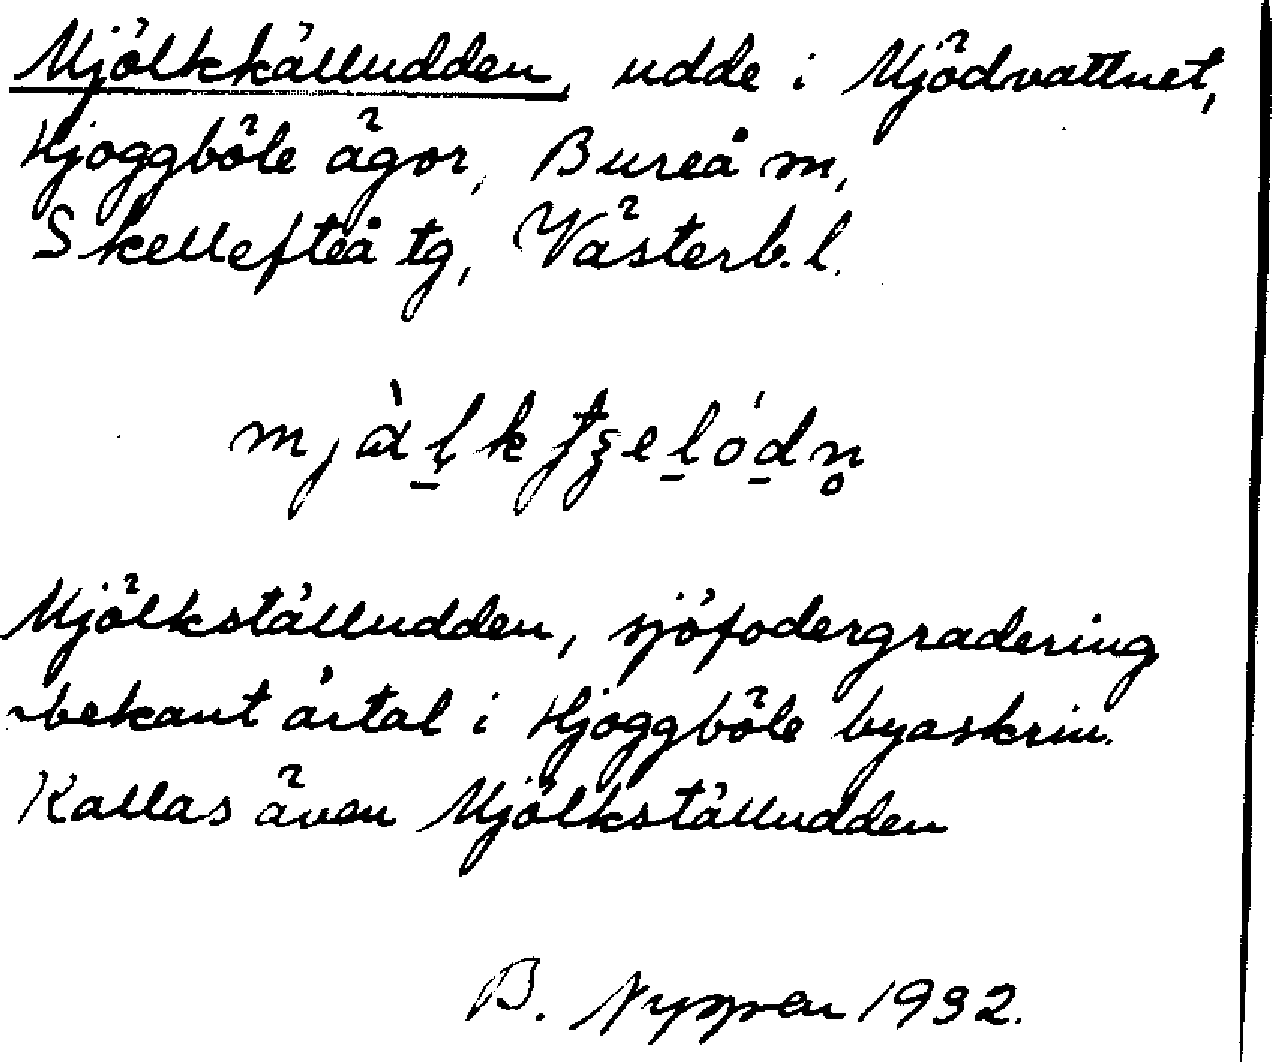 Mjölkkälludden, udde i Mjödvattnet,
Hjoggböle ägor, Bureå sn,
Skellefteå tg, Västerb. l.
Mjölkställudden, sjöfodergradering
obekant årtal i Hjoggböle byaskrin.
Kallas även Mjölkställudden
B. 1932.